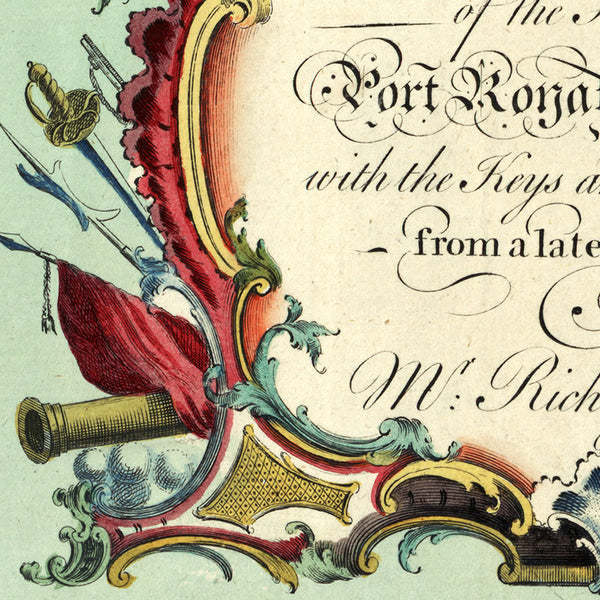 of the
Port Royal
with the Keys
from a late
Mr. Rich